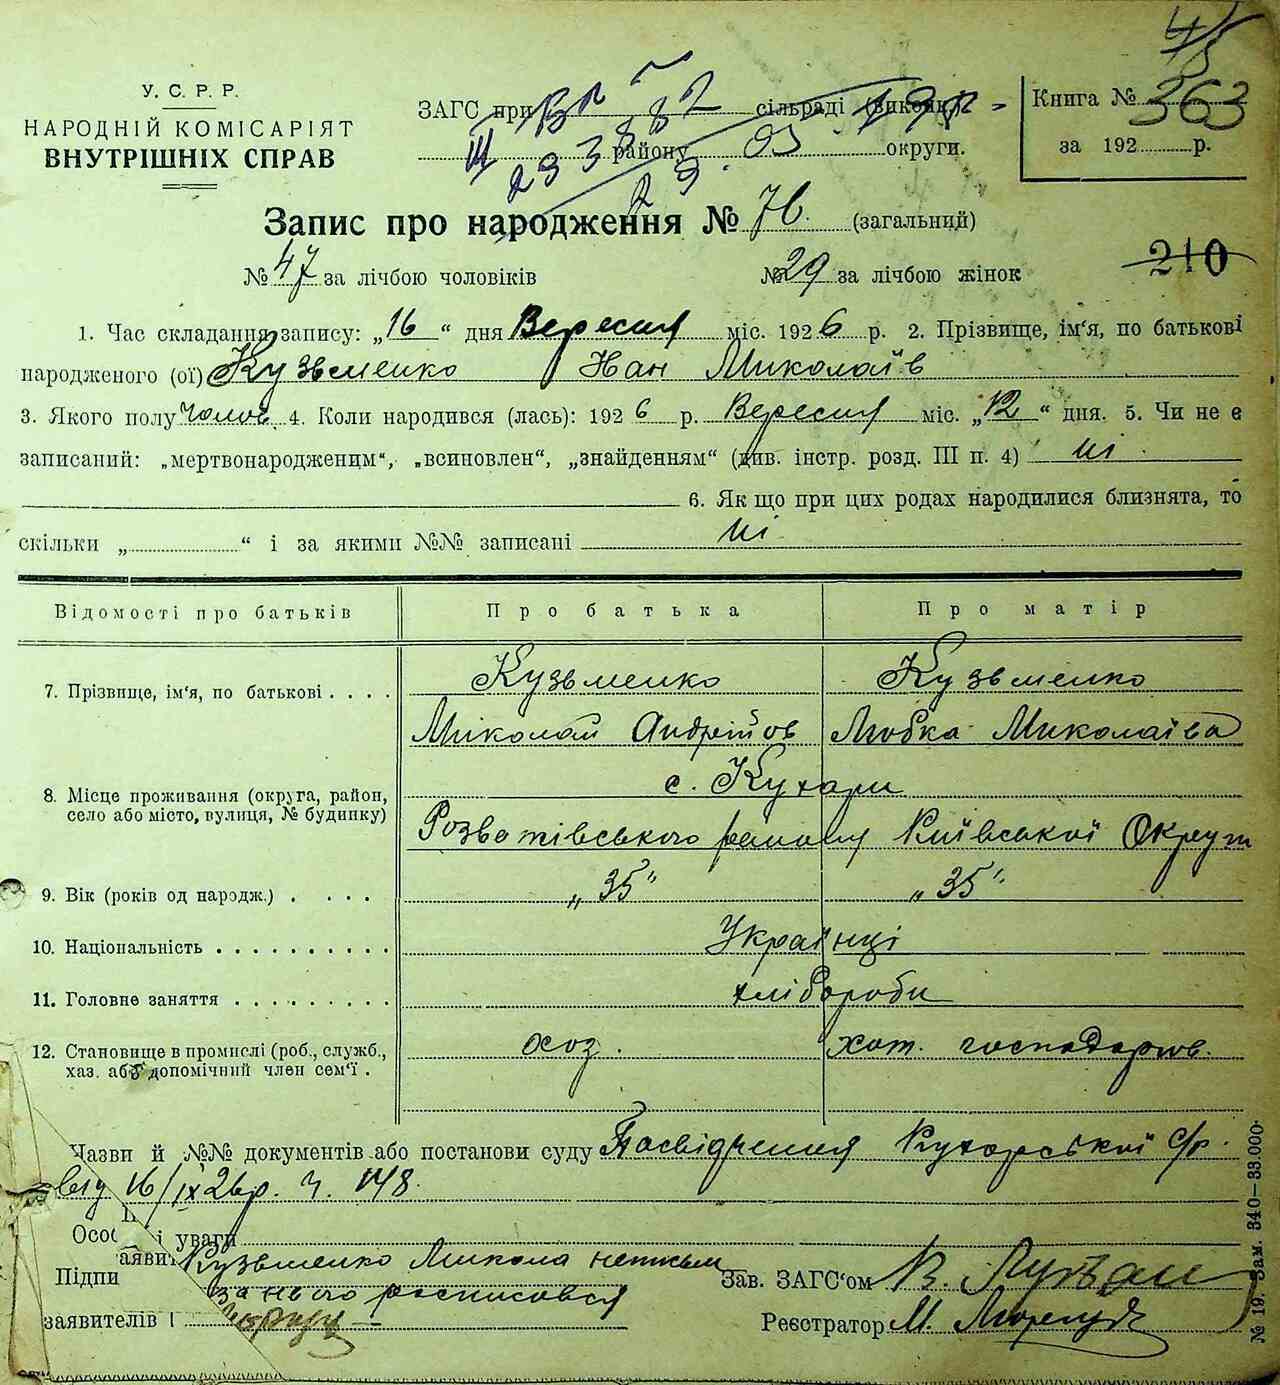 45
У. С. Р. Р.
НАРОДНІЙ КОМІСАРІЯТ
ВНУТРІШНІХ СПРАВ
ЗАГС при сільраді (виконк)
району округи.
Книга № 363
за 192 р.
Запис про народження № 76. (загальний)
№ 47 за лічбою чоловіків № 29 за лічбою жінок
210
1. Час складання запису: „16“ дня Вересня міс. 1926 р. 2. Прізвище, ім‘я, по батькові
народженого (ої) Кузьменко Іван Миколаїв
3. Якого полу чолов. 4. Коли народився (лась): 1926 р. Вересня міс. „12“ дня. 5. Чи не є
записаний: „мертвонародженим“, „всиновлен“, „знайденням“ (див. інстр. розд. III п. 4) ні
6. Як що при цих родах народилися близнята, то
скільки „ “ і за якими №№ записані ні
Відомості про батьків Про батька Про матір
7. Прізвище, ім‘я, по батькові . . . . Кузьменко Кузьменко
Міколай Андрійов Любка Миколаїва
8. Місце проживання (округа, район, село або місто, вулиця, № будинку) с. Кухари
Розважівського району Київської Округи
9. Вік (років од народж.) . . . . „35“ „35“
10. Національність . . . . . . . . . . Українці
11. Головне заняття . . . . . . . . . хлібороби
12. Становище в промислі (роб., служб., хаз. або допомічний член сем‘ї . хоз. хат. господарюв.
Назви й №№ документів або постанови суду Посвідчення Кухарської с/р.
від 16/IX 26р. ч. 148.
Осо і уваги
Підпи Кузьменко Микола неписьм
за нього росписовся
заявителів
Зав. ЗАГС‘ом В.
Реєстратор М.
№ 19. Зам. 340—33.000.